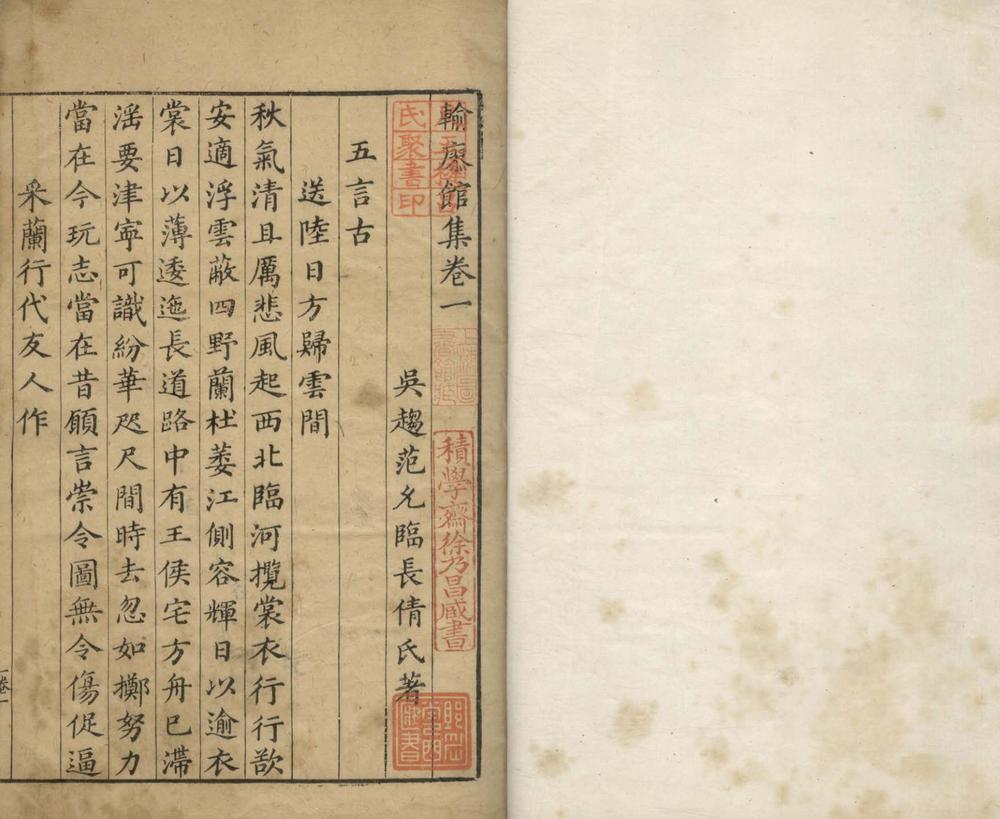 輸廖館集卷一
吳趨范允臨長倩氏著
五言古
送陸日方歸雲間
秋氣清且厲悲風起西北臨河攬裳衣行行欲
安適浮雲蔽四野蘭杜萎江側容輝日以逾衣
裳日以薄逶迤長道路中有王侯宅方舟已滯
淫要津寧可識紛華咫尺間時去忽如擲努力
當在今玩志當在昔願言崇令圖無令傷促逼
采蘭行代友人作
卷一
氏聚書印
積學齋徐乃昌臧書